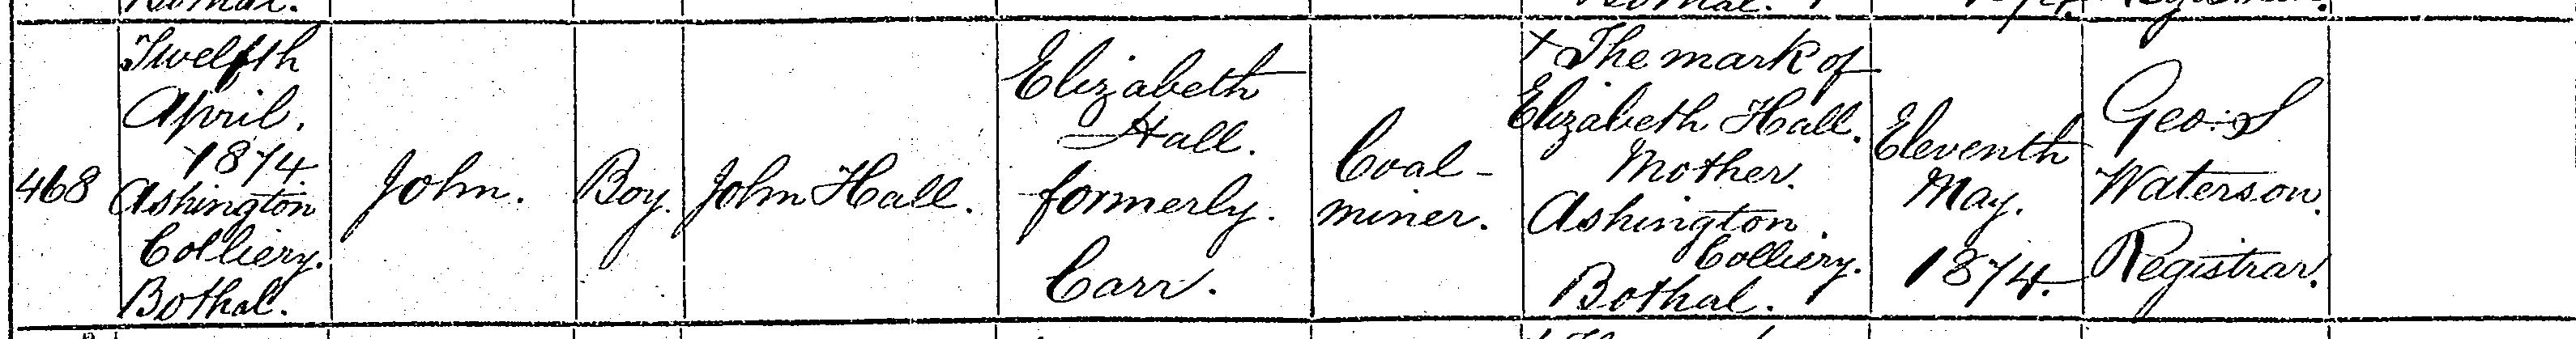 468
Twelfth
April.
1874
Ashington
Colliery.
Bothal.
John.
Boy.
John Hall.
Elizabeth
Hall.
formerly.
Carr.
Coal-
miner.
+ The mark of
Elizabeth Hall.
Mother.
Ashington.
Colliery.
Bothal.
Eleventh
May.
1874.
Geo: S
Waterson.
Registrar.